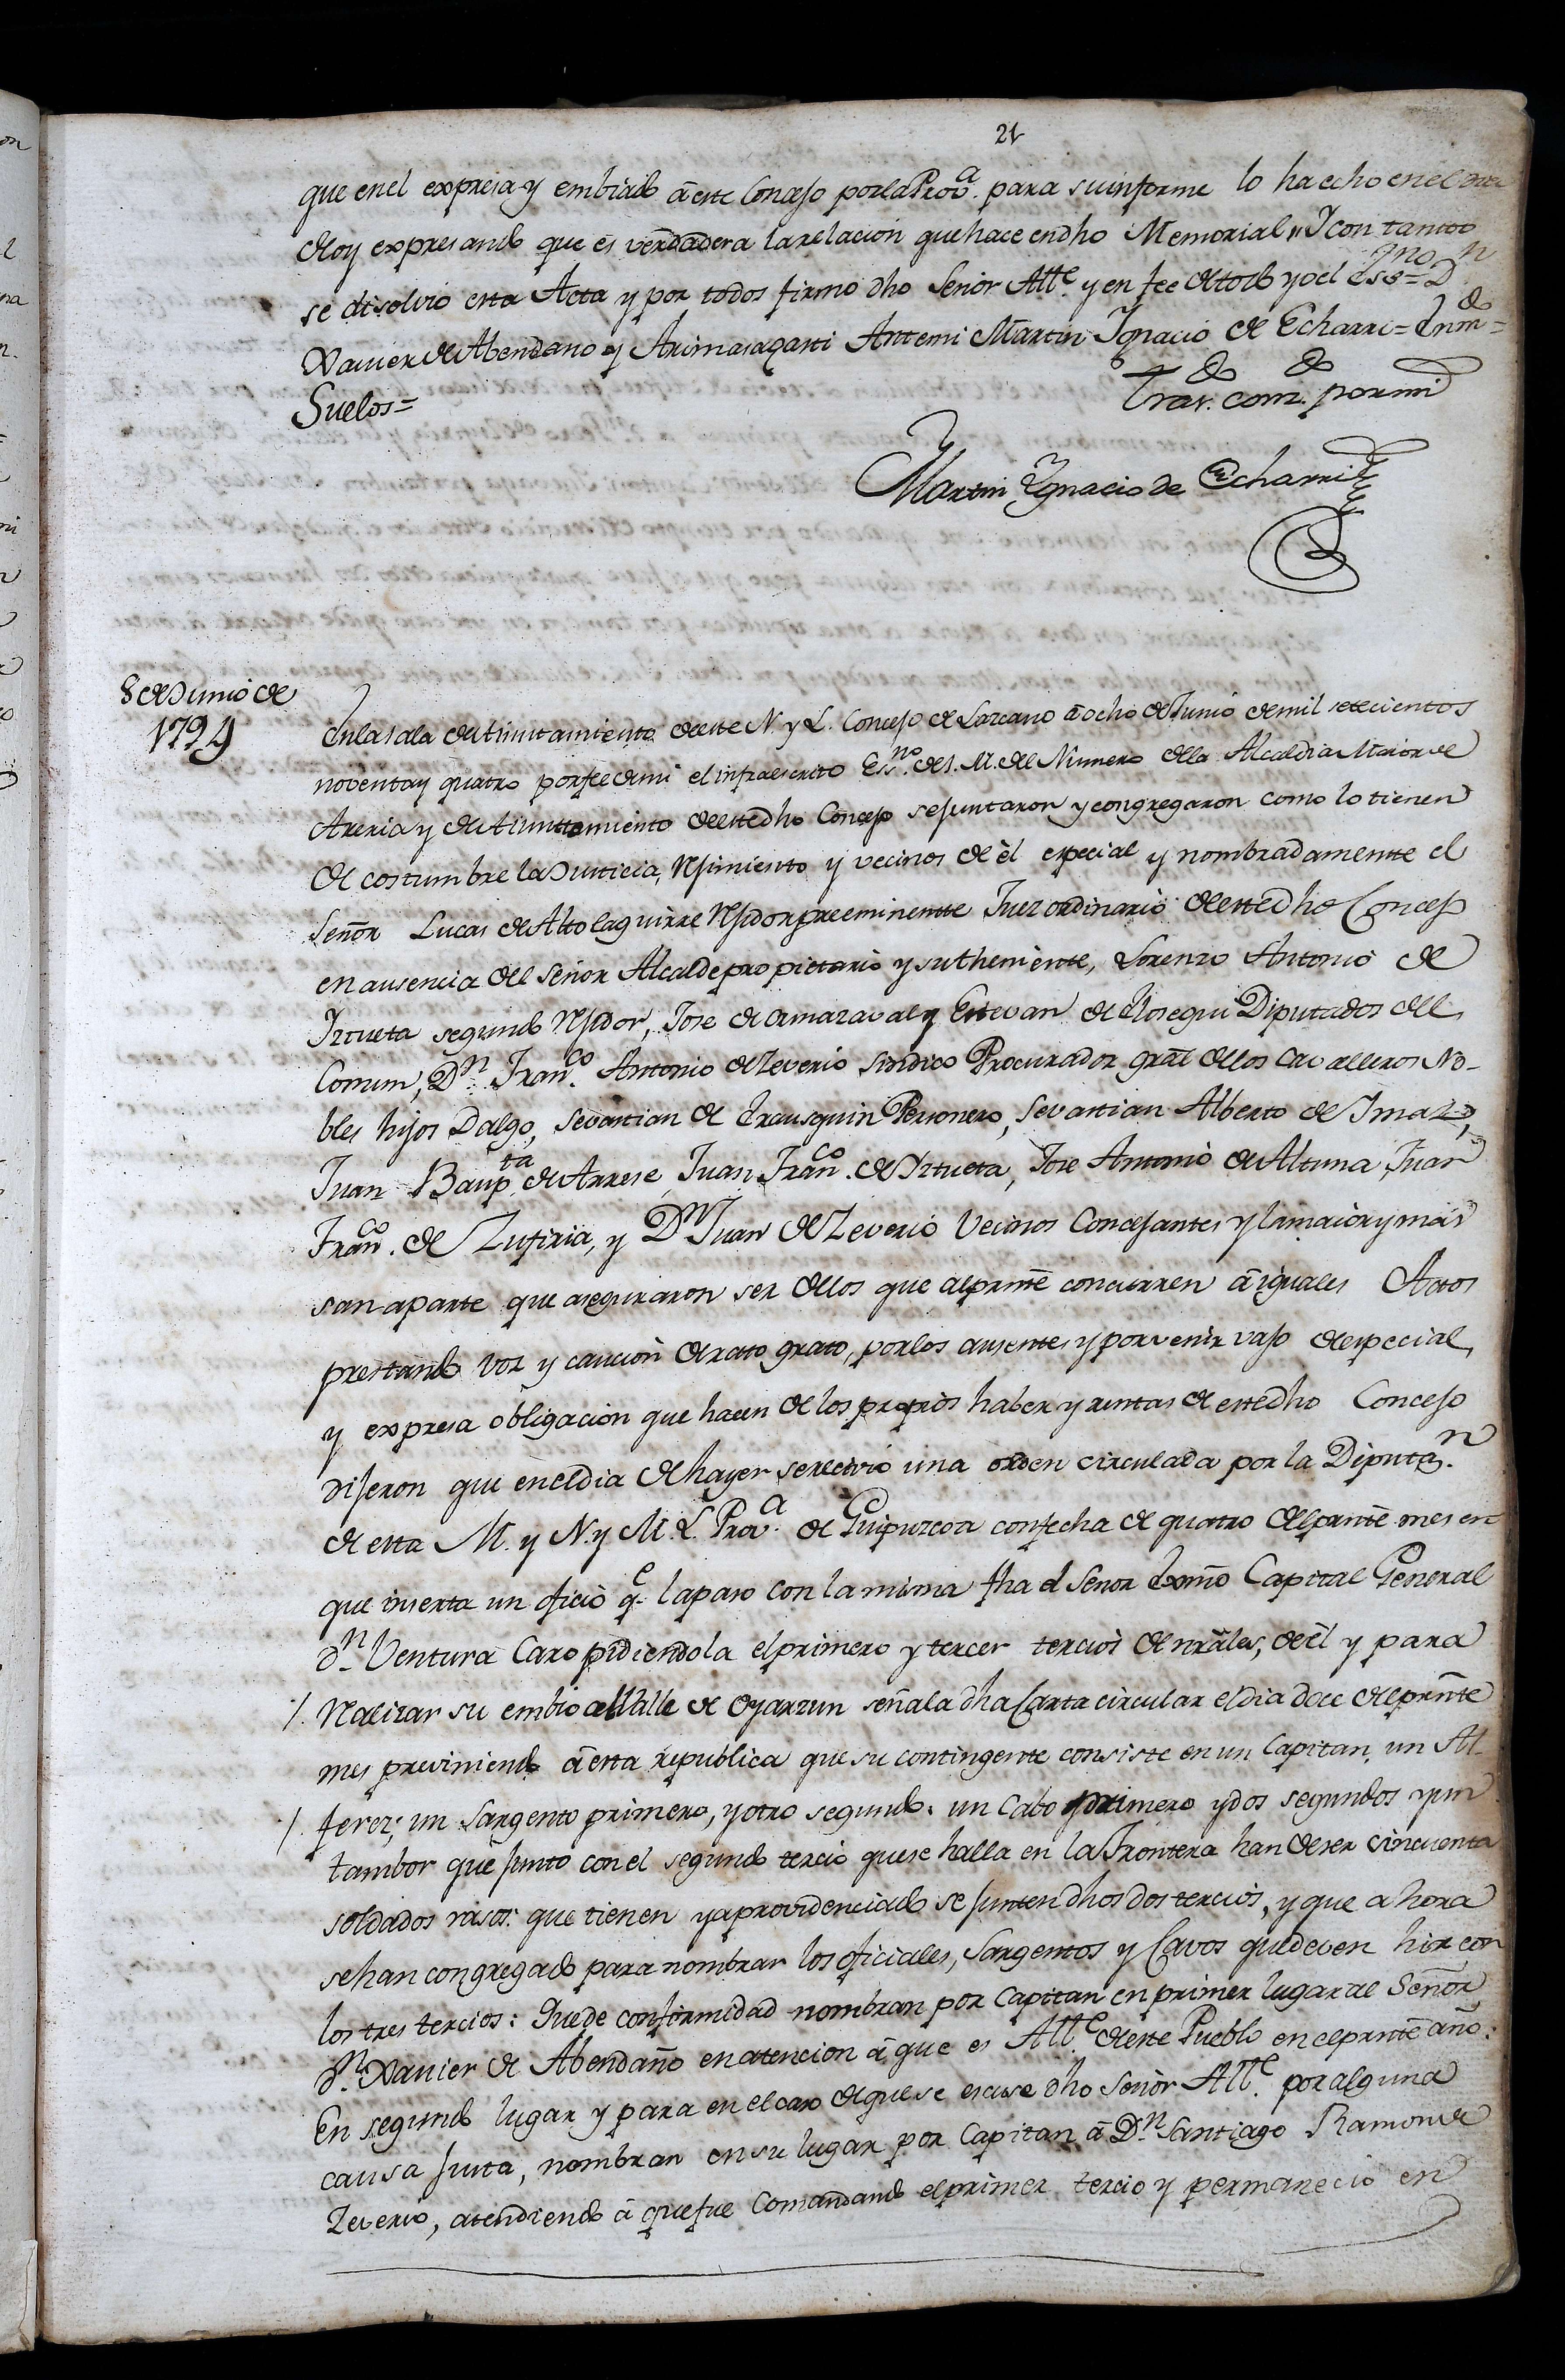 21
que enel expresa y embiado à este Concejo porla Prov.ª para suinforme lo ha echo enel
de oy expresando que es verdadera larelacion que hace endho Memorial " Y con tantto
se disolvio esta Acta y por todos firmo dho Señor All.e y en fee de todo yo el Essno = Dn
Xavier de Abendano y Arimasagasti Antemi Martin Ygnacio de Echarri = Enmdo =
Suelos =
Tras.do con.do por mi
Martin Ygnacio de Echarri
8 de Junio de
1794
Enlasala de Aiuntamiento deeste N. y L. Concejo de Lazcano à ocho de Junio demil setecientos
noventay quatro porfee demi el infraescrito Essno. de S. M. del Numero dela Alcaldia Maior de
Areria y de Aiunttamiento deestedho Concejo sejuntaron y congregaron como lo tienen
de costumbre la Justicia, Rejimiento y vecinos de èl especial y nombradamentte el
Señor Lucas de Altolaguirre Rejidor preeminentte Juez ordinario deestedho Concejo
en ausencia del Señor Alcalde propietario y su theniente, Lorenzo Antonio de
Iztueta segundo Rejidor, Jose de Amazaval y Estevan de Elosegui Diputados del
Comun, Dn. Franco. Antonio de Zeverio sindico Procurador gral delos Cavalleros No-
bles hijos Dalgo, Sevastian de Erausquin Personero, Sevastian Alberto de Imaz,
Juan Baupta de Arrese, Juan Franco. de Yztueta, Jose Antonio de Altuna, Juan
Franco. de Zufiria, y Dn Juan de Zeverio Vecinos Concejantes y lamaior y mas
sanaparte que aseguraron ser delos que alprnte concurren à iguales Actos
prestando voz y caucion de rato grato, porlos ausentes y porvenir vajo deespecial
y expresa obligacion que hacen de los propios haber y rentas de estedho Concejo
dijeron que eneldia de hayer serecivio una orden circulada por la Diputan.
de esta M. y N. y M. L. Prova. de Guipuzcoa confecha de quatro delprnte mes en
que inserta un oficio qe. lapaso con la misma fha el Señor Exmo Capital General
dn. Ventura Caro pidiendola elprimero y tercer tercios de nrales, de èl y para
/. Realizar su embio al Valle de Oyarzun señala dha Carta circular eldia doce delprnte
mes previniendo à esta republica que su contingente consiste en un Capitan, un Al-
/. ferez; un Sargento primero, y otro segundo: un Cabo primero y dos segundos y un
tambor que junto con el segundo tercio quese halla en la Frontera han deser cincuenta
soldados rasos: que tienen yaprovidenciado se junten dhos dos tercios, y que ahora
sehan congregado para nombrar los oficiales, Sargentos y Cavos quedeven hir con
los tres tercios: Quede conformidad nombran por Capitan en primer lugar al Señor
dn. Xavier de Abendaño en atencion à que es All.e deeste Pueblo en elprnte año:
En segundo lugar y para en el caso de quese escuse dho Señor All.e por alguna
causa justa, nombran en su lugar por Capitan à Dn. Santiago Ramon de
Zeverio, atendiendo à quefue Comandando elprimer tercio y permanecio en